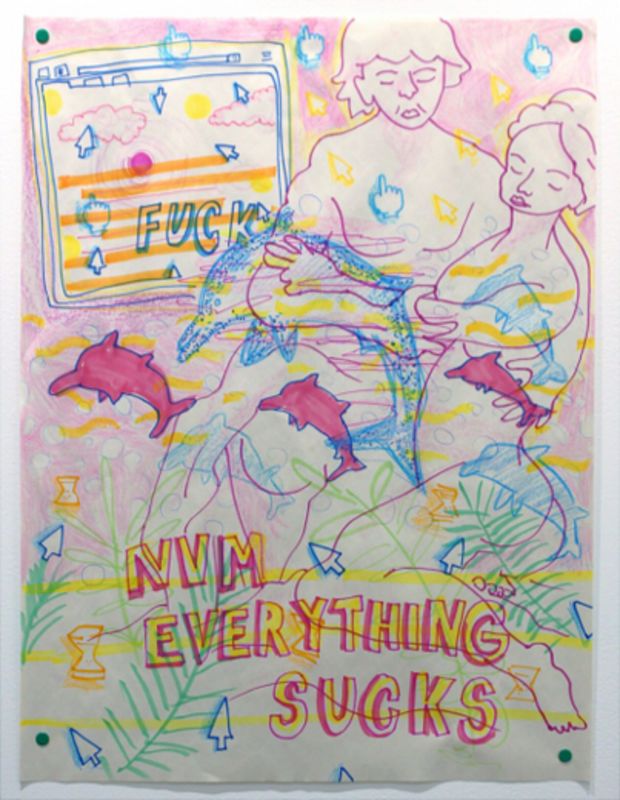 FUCK
NVM
EVERYTHING
SUCKS